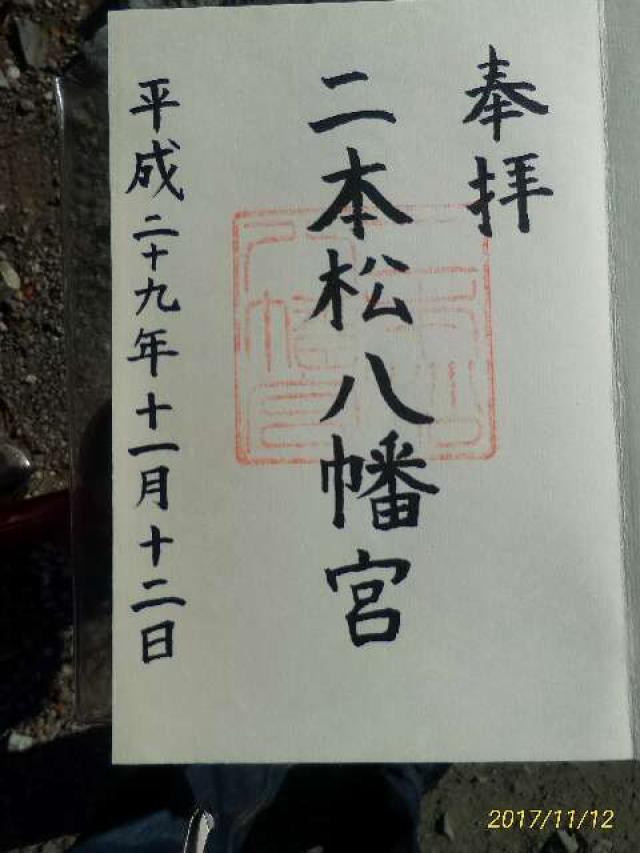 奉拝
二本松八幡宮
平成二十九年十一月十二日
2017/11/12